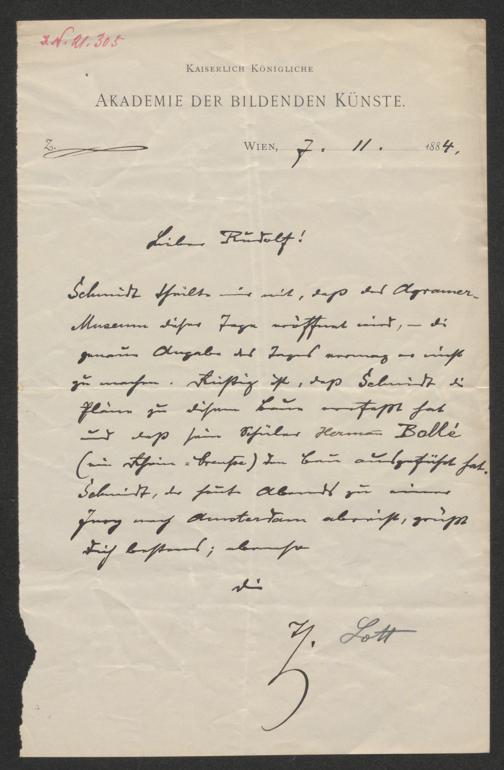 I.N. 21.305
KAISERLICH KÖNIGLICHE
AKADEMIE DER BILDENDEN KÜNSTE.
Z.
WIEN, 7. 11. 1884.
Lieber Rudolf!
Schmidt theilte mir mit, daß das Agramer-
Museum dieser Tage eröffnet wird, – die
genaue Angabe des Tages vermag er nicht
zu machen. Richtig ist, daß Schmidt die
Pläne zu diesem Baue verfaßt hat
und daß sein Schüler Herman Bollé
(ein Rhein-) den Bau ausgeführt hat.
Schmidt, der heute Abends zu einer
Jury nach Amsterdam abreist, grüßt
Dich bestens; ebenso
Dein
Lott